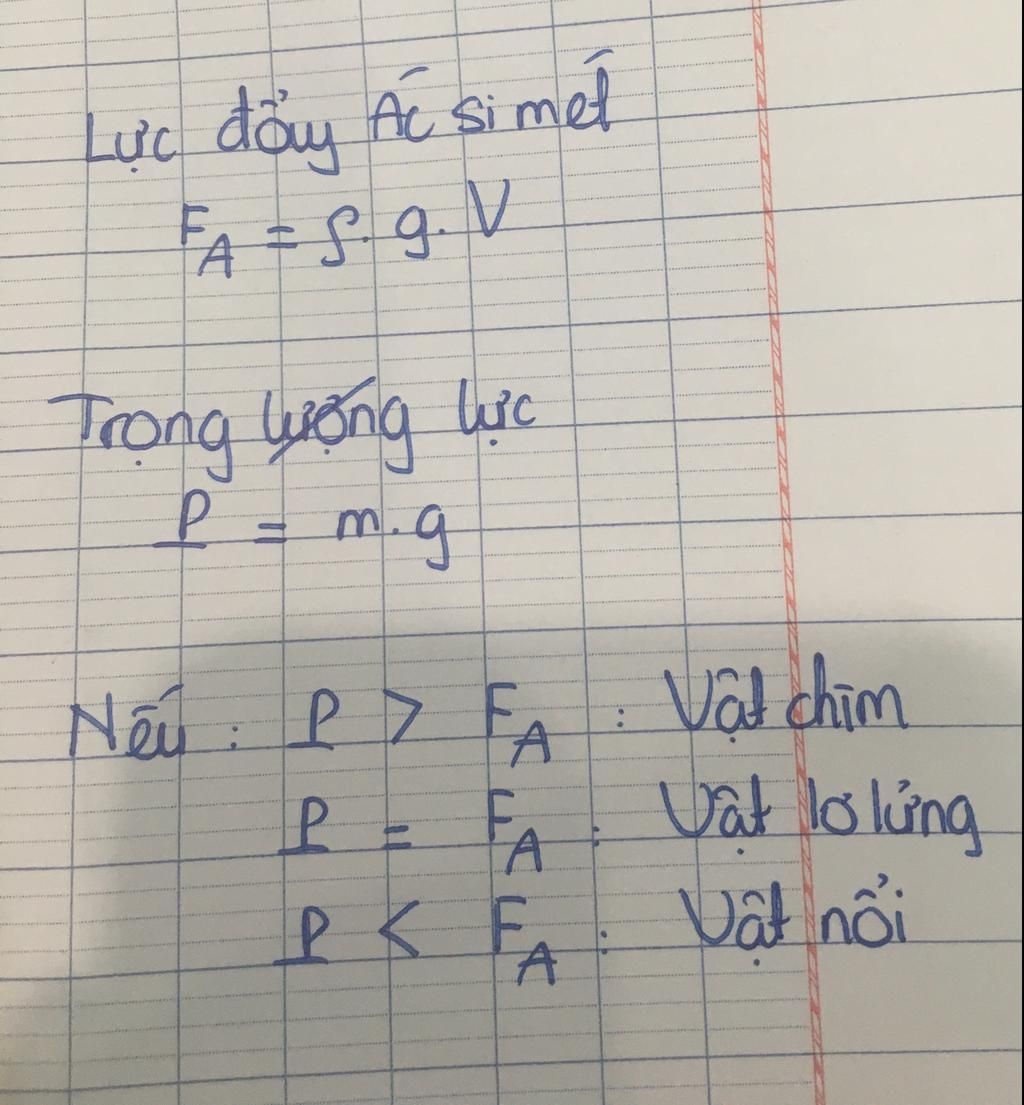 Lực đẩy Ác si mét
F_A = ρ. g. V
Trọng lượng lực
P = m. g
Nếu : P > F_A : Vật chìm
P = F_A : Vật lơ lửng
P < F_A : Vật nổi